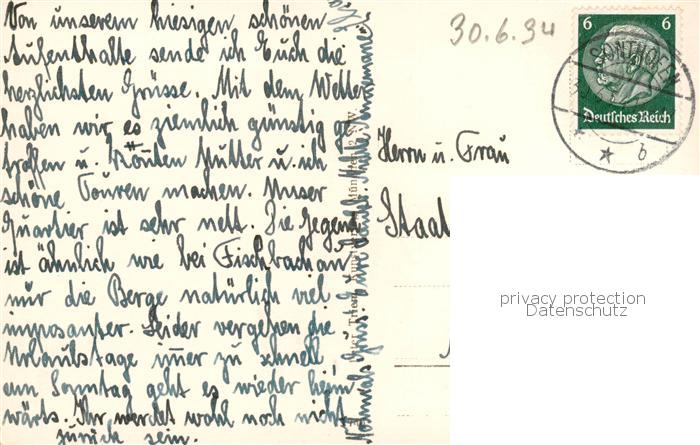 Von unserem hiesigen schönen
Aufenthalte sende ich Euch die
herzlichsten Grüsse. Mit dem Wetter
haben wir es ziemlich günstig ge
troffen u. könnten Mutter u. ich
schöne Touren machen. Unser
Quartier ist sehr nett. Die Gegend
ist ähnlich wie bei Fischbachau
nur die Berge natürlich viel
imposanter. Leider vergehen die
Urlaubstage immer zu schnell
am Sonntag geht es wieder heim
wärts. Ihr werdet wohl noch nicht
zurück sein.
Nochmals Grüsse
30.6.34
6 6
Deutsches Reich
SONTHOFEN
* b
Herrn u. Frau
Staat
privacy protection
Datenschutz